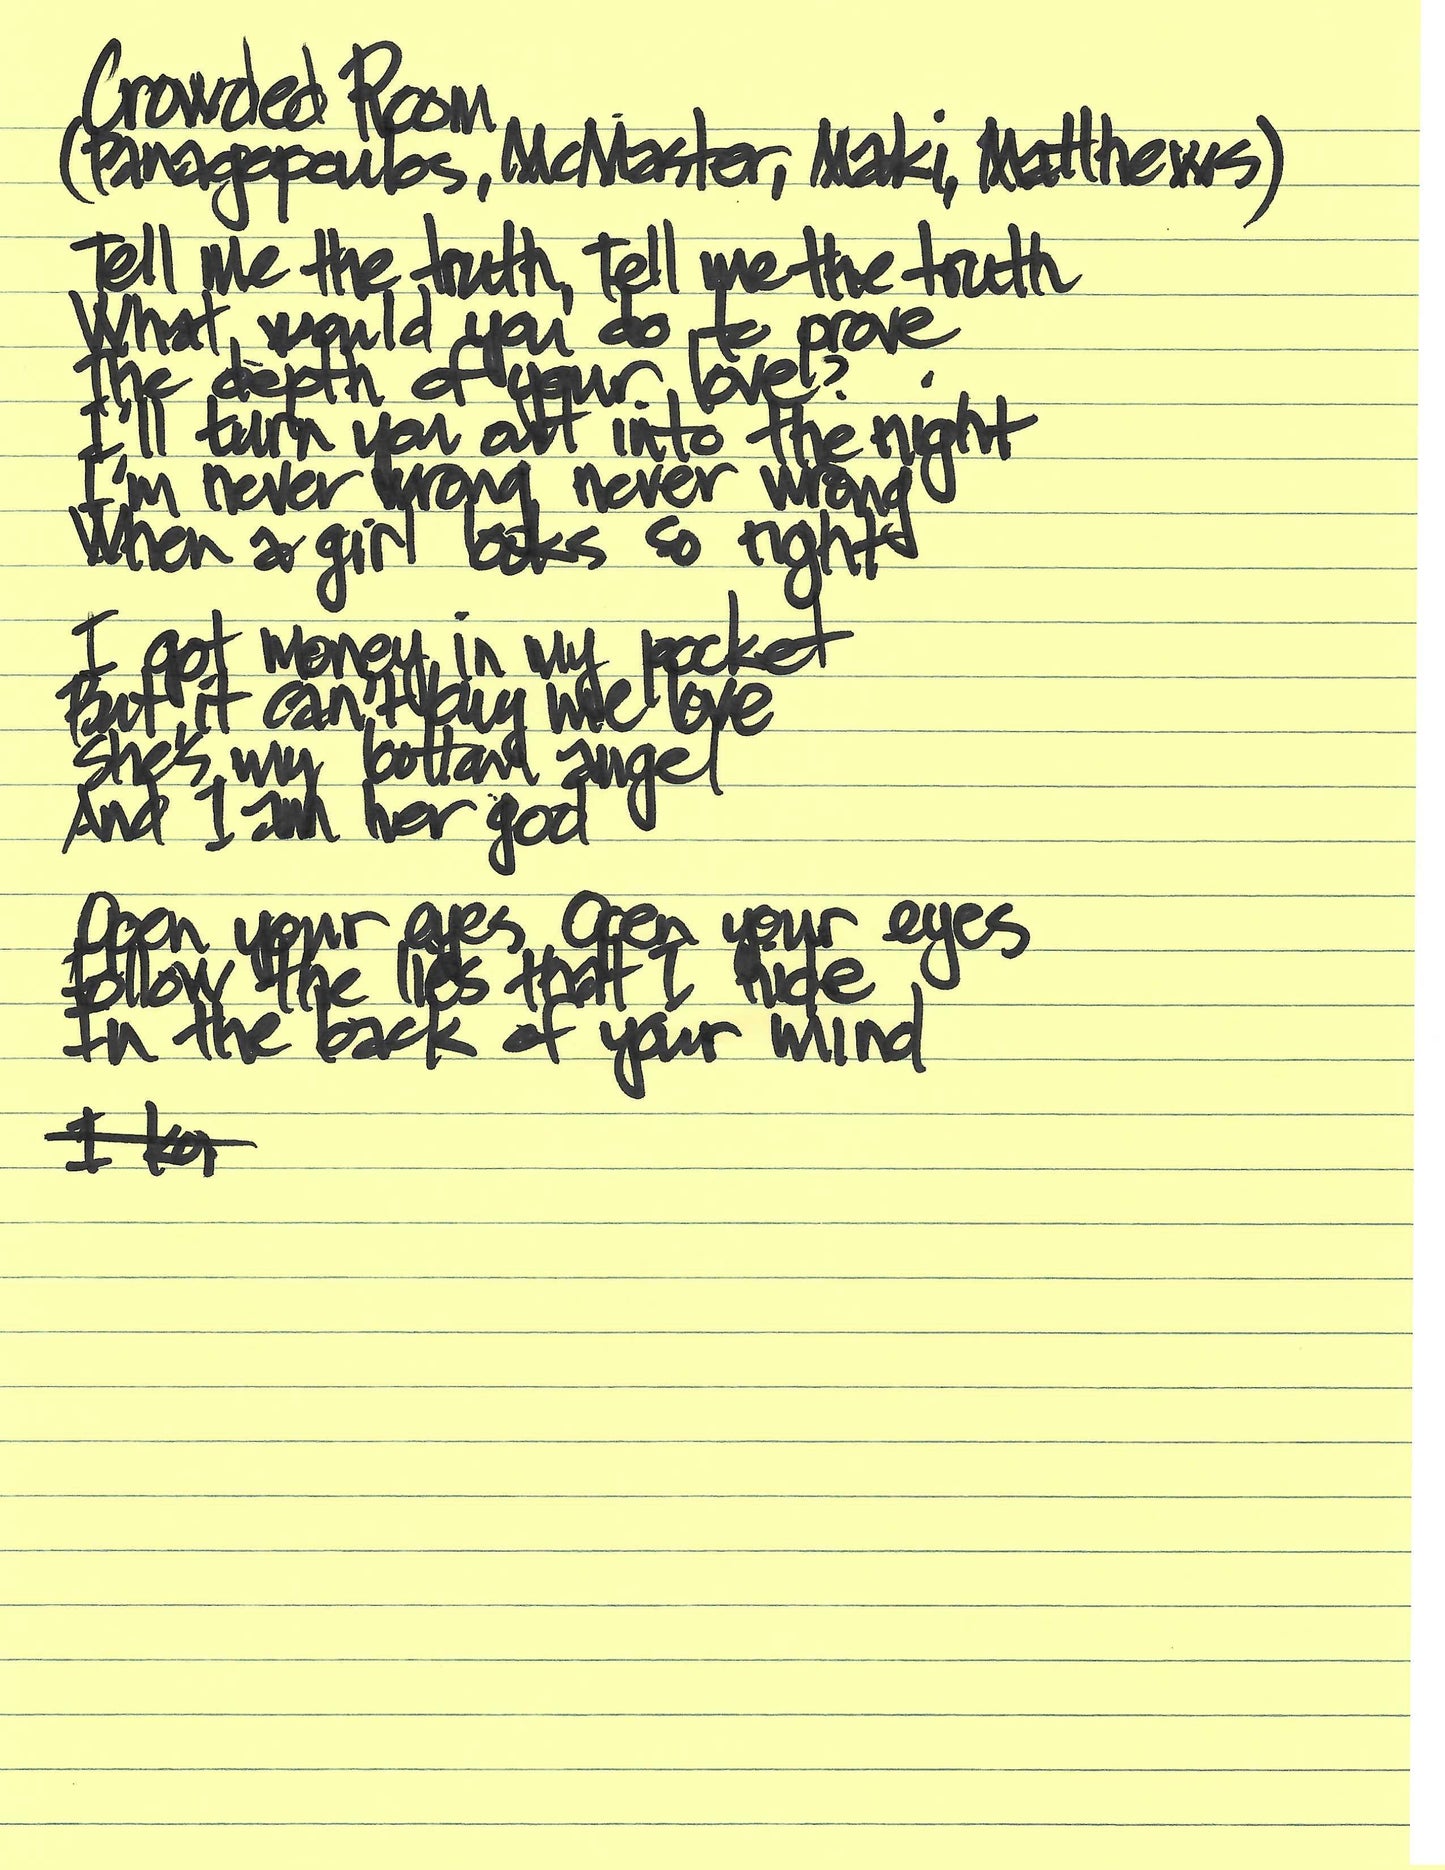 Crowded Room
(Panagopoulos, McMaster, Maki, Matthews)
Tell me the truth, Tell me the truth
What would you do to prove
The depth of your love?
I'll turn you out into the night
I'm never wrong never wrong
When a girl looks so right
I got money in my pocket
But it can't buy me love
She's my bottom angel
And I am her god
Open your eyes Open your eyes
Follow the lies that I hide
In the back of your mind
I